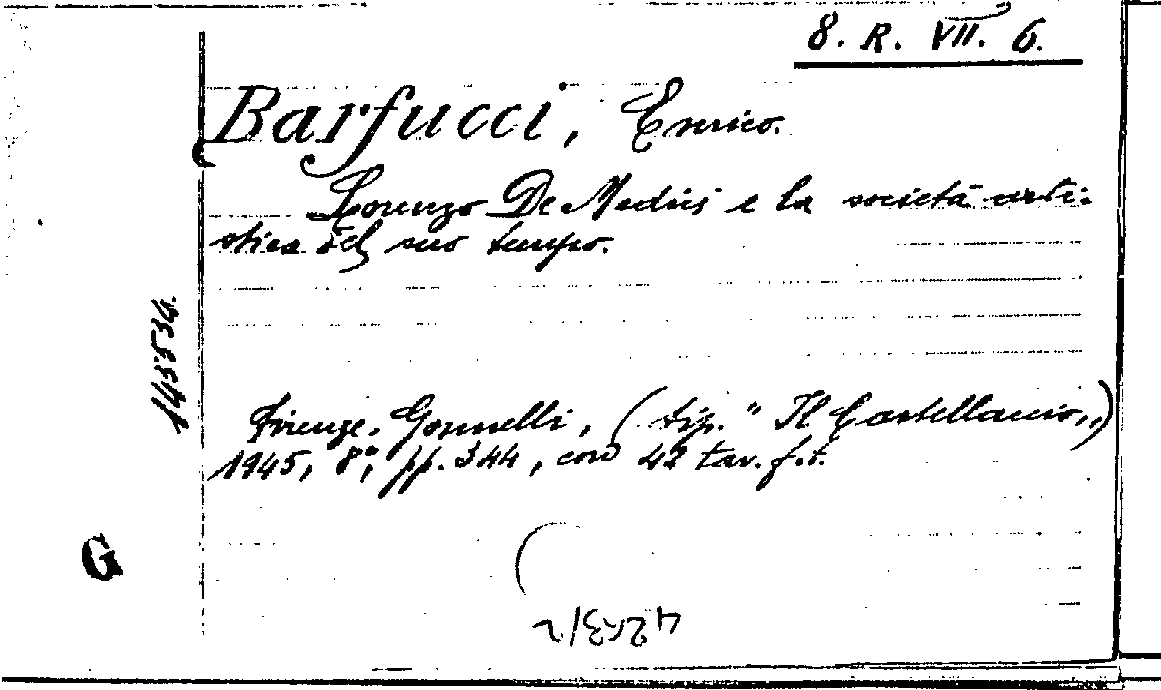 8. R. VII. 6.
Barfucci, Enrico.
Lorenzo De Medici e la società arti-
stica del suo tempo.
145534.
Firenze, Gonnelli, (tip. "Il Castellaccio,,)
1945, 8°, pp. 344, con 42 tav. f. t.
G